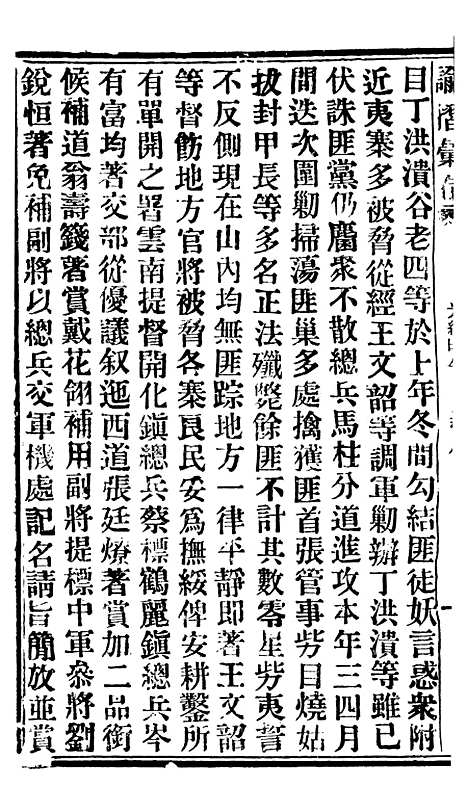 諭摺彙存
目丁洪潰谷老四等於上年冬間勾結匪徒妖言惑衆附
近夷寨多被脅從經王文韶等調軍勦辦丁洪潰等雖已
伏誅匪黨仍屬衆不散總兵馬柱分道進攻本年三四月
間迭次圍勦掃蕩匪巢多處擒獲匪首張管事勞目燒姑
拔封甲長等多名正法殲斃餘匪不計其數零星勞夷誓
不反側現在山內均無匪踪地方一律平靜即著王文韶
等督飭地方官將被脅各寨良民妥爲撫綏俾安耕鑿所
有單開之署雲南提督開化鎮總兵蔡標鶴麗鎮總兵岑
有富均著交部從優議叙迤西道張廷燎著賞加二品銜
候補道翁壽籛著賞戴花翎補用副將提標中軍叅將劉
銳恒著免補副將以總兵交軍機處記名請旨簡放並賞